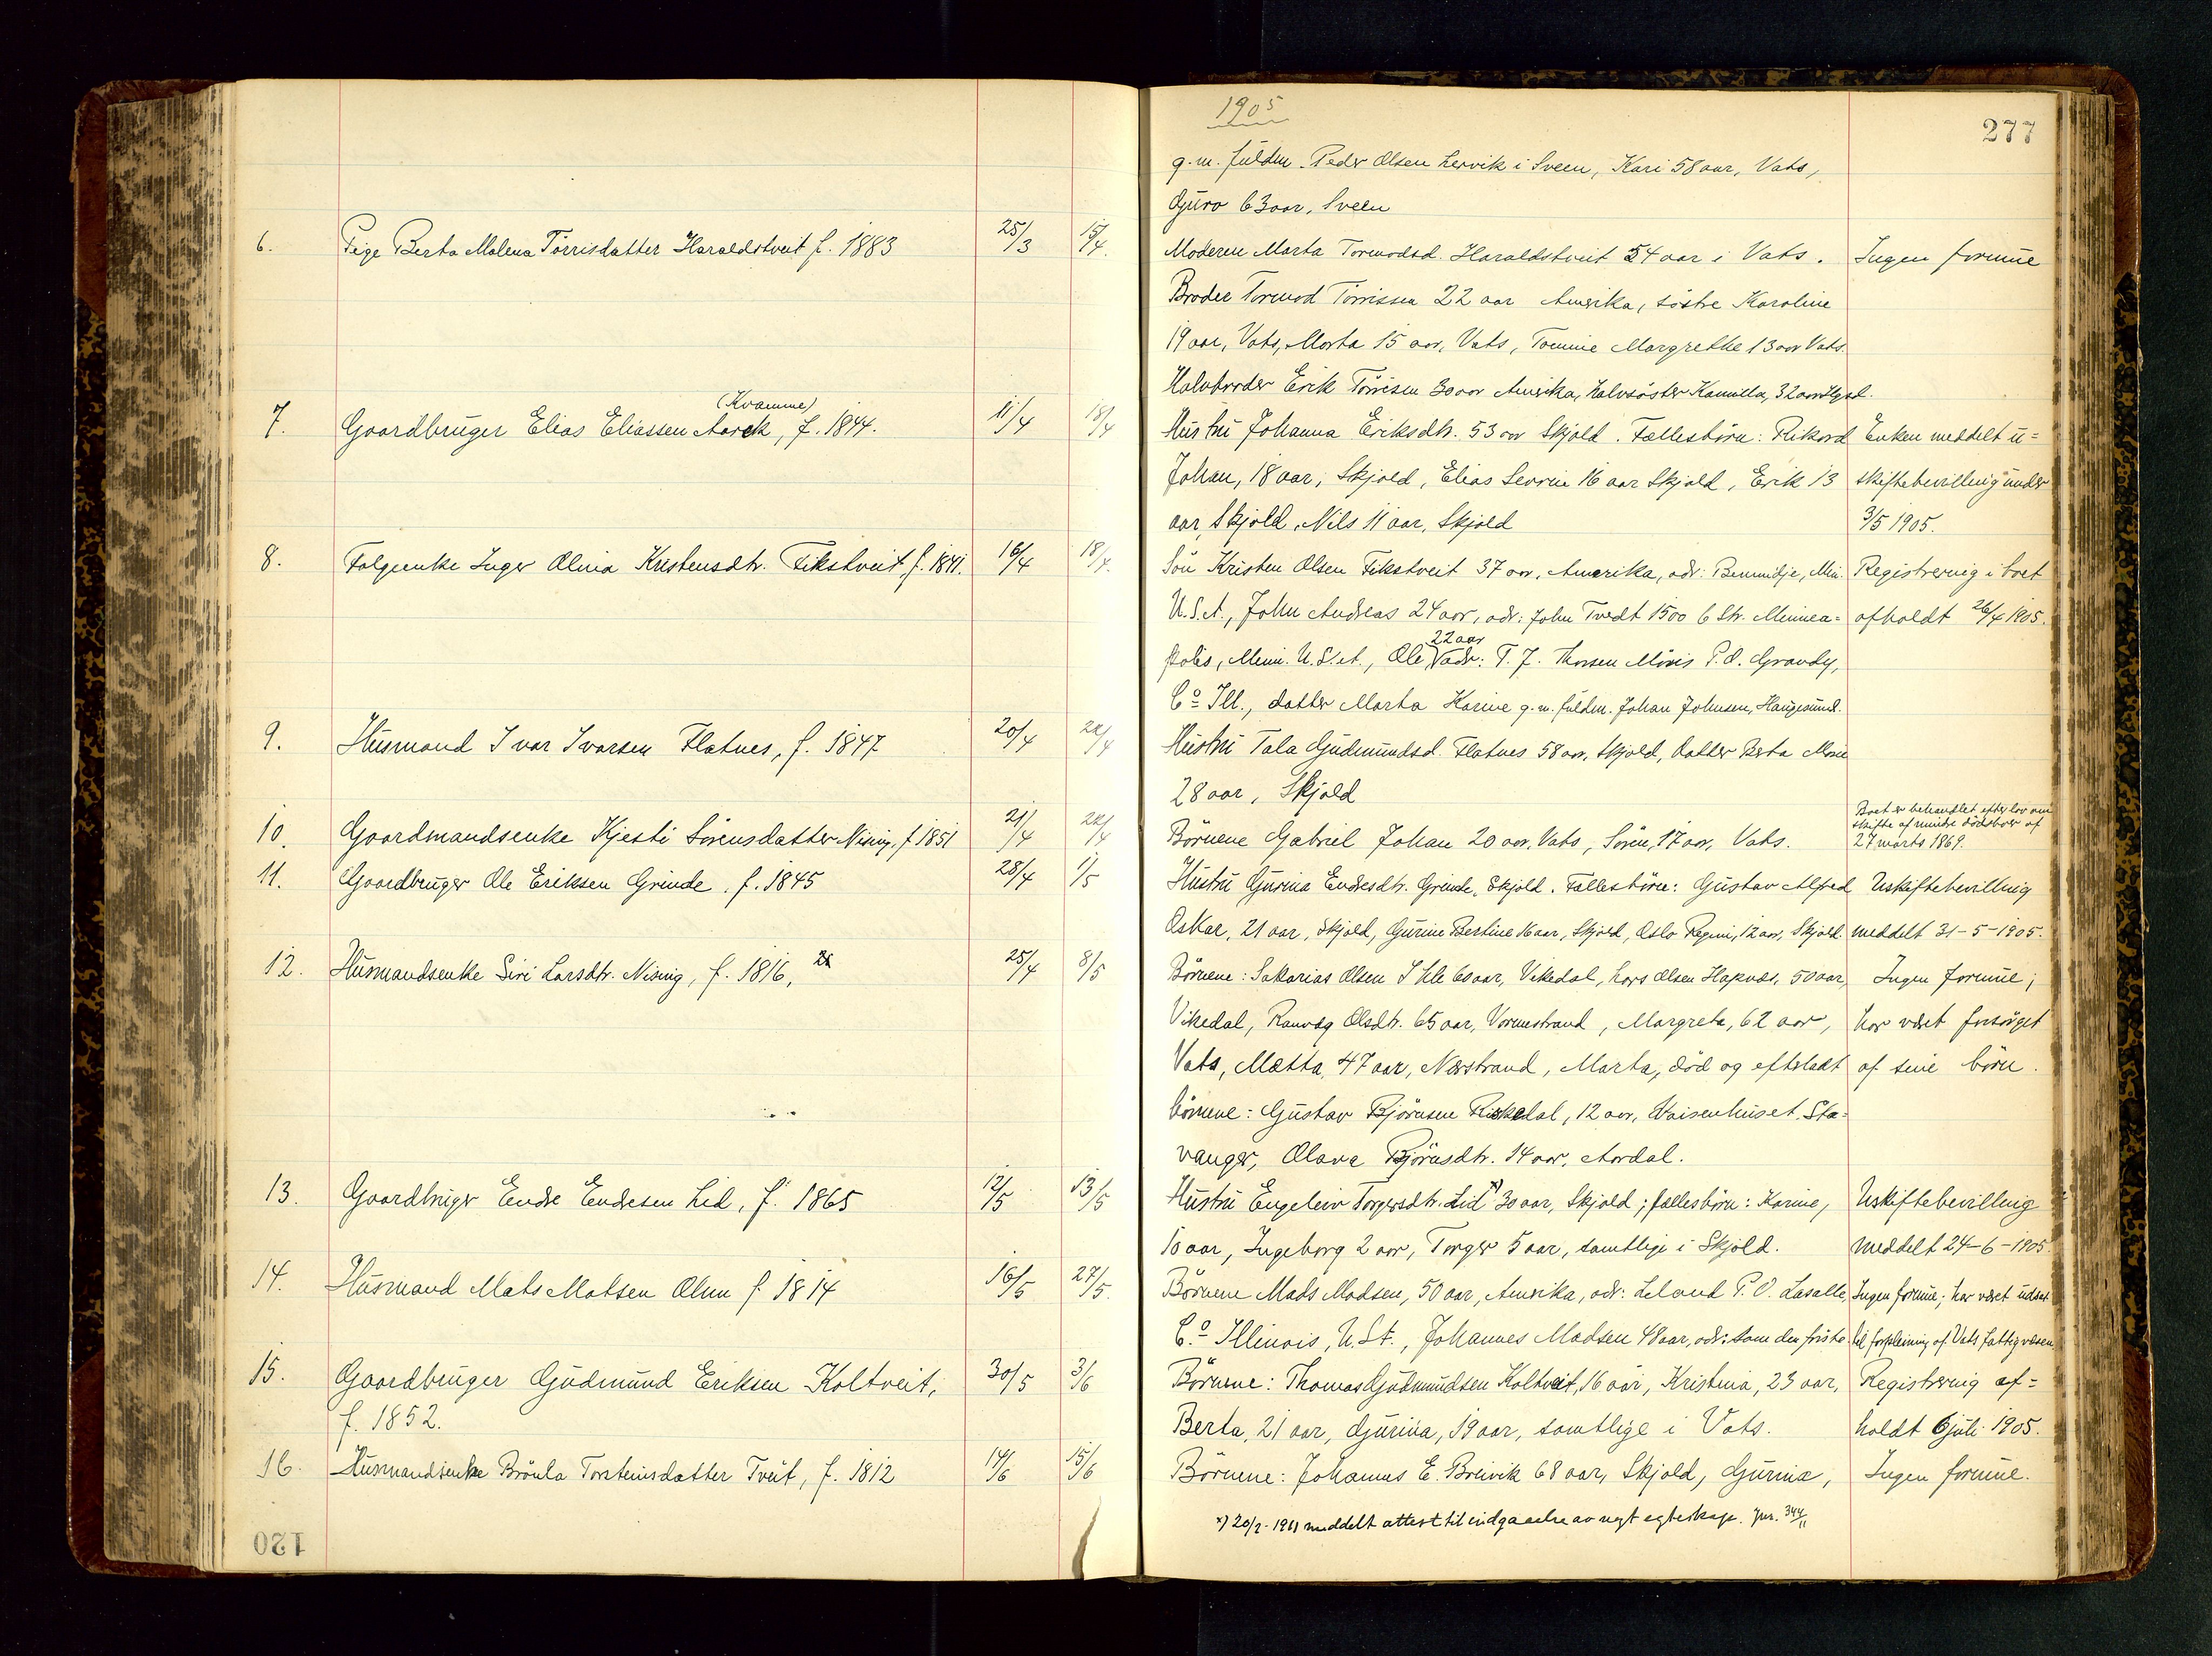 1905
277
g. m. fuldm. Peder Olsen Lervik i Sveen, Kari 58 aar, Vats,
Guro 63 aar, Sveen
6. Pige Berta Malena Tørrisdatter Haraldstveit f. 1883 25/3 15/4. Moderen Marta Tormodsd. Haraldstveit 54 aar i Vats. Ingen formue
Broder Tormod Tørrissen 22 aar Amerika, søstre Karoline
19 aar, Vats, Marta 15 aar, Vats, Tomine Margrethe 13 aar Vats.
Halvbroder Erik Tørrisen 30 aar Amerika, halvsøster Kamilla, 32 aar
(Kvamme)
7. Gaardbruger Elias Eliassen Aarek, f. 1844. 11/4 18/4 Hustru Johanna Eriksdtr. 53 aar Skjold. Fællesbørn: Rikard Enken meddelt u=
Johan, 18 aar, Skjold, Elias Severin 16 aar Skjold, Erik 13 skiftebevilling under
aar, Skjold, Nils 11 aar, Skjold 3/5 1905.
8. Folgeenke Inger Olina Kristensdtr. Fikstveit f. 1841. 16/4 18/4. Søn Kristen Olsen Fikstveit 37 aar, Amerika, adr: Bemmidje, Min. Registrering i boet
U.S.A., John Andreas 24 aar, adr: John Tvedt 1500 6 Str. Minnea= afholdt 26/4 1905.
22 aar
polis, Minn. U.S.A., Ole adr: T. J. Thorsen Moris P.O. Grundy,
Co Ill., datter Marta Karine g. m. fuldm. Johan Johnsen, Haugesund.
9. Husmand Ivar Ivarsen Flatnes, f. 1847 20/4 22/4 Hustru Tala Gudmundsd. Flatnes 58 aar, Skjold, datter Berta Marie
28 aar, Skjold
10. Gaardmandsenke Kjesti Sørensdatter Nising, f 1851 21/4 22/4 Børnene Gabriel Johan 20 aar, Vats, Søren, 17 aar, Vats. Boet er behandlet efter lov om
skifte af mindre dødsboer af
27 marts 1869.
11. Gaardbruger Ole Eriksen Grinde, f. 1845 28/4 1/5 Hustru Gurina Endresdtr. Grinde, Skjold. Fællesbørn: Gustav Alfred Uskiftebevilling
Oskar, 21 aar, Skjold, Gurine Bertine 16 aar, Skjold, Oslo Regini, 12 aar, Skjold. meddelt 31-5-1905.
12. Husmandsenke Siri Larsdtr. Nising, f. 1816, 25/4 8/5 Børnene: Sakarias Olsen Ihle 60 aar, Vikedal, Lars Olsen Hapnæs, 50 aar, Ingen formue;
Vikedal, Ranvæg Olsdtr. 65 aar, Vormestrand, Margreta, 62 aar, har været forsørget
Vats, Mætta, 47 aar, Nerstrand, Marta, død og efterladt af sine børn.
børnene: Gustav Bjørnsen Riskedal, 12 aar, Waisenhuset, Sta=
vanger, Olava Bjørnsdtr. 14 aar, Aardal.
13. Gaardbruger Endre Endresen Lid, f. 1865 12/5 13/5 Hustru Engelein Torgersdtr. Lid x) 30 aar, Skjold; fællesbørn: Karine, Uskiftebevilling
10 aar, Ingeborg 2 aar, Torger 5 aar, samtlige i Skjold. meddelt 24-6-1905.
14. Husmand Mats Matsen Olun f. 1814 16/5 27/5. Børnene Mads Madsen, 50 aar, Amerika, adr: Leland P.O. Lasalle, Ingen formue; har været udsat
Co Illinois, U.St., Johannes Madsen 48 aar, adr: som den første. til forpleining af Vats fattigvæsen
15. Gaardbruger Gudmund Eriksen Koltveit, 30/5 3/6 Børnene: Thomas Gudmundsen Koltveit, 16 aar, Kristina, 23 aar, Registrering af=
f. 1852. Berta, 21 aar, Gurina, 19 aar, samtlige i Vats. holdt 6 juli 1905.
16. Husmandsenke Brønla Torsteinsdatter Tveit, f. 1812 14/6 15/6 Børnene: Johannes E. Breivik 68 aar, Skjold, Gurina, Ingen formue.
x) 20/2-1911 meddelt attest til indgaaelse av nyt egteskap. Jnr. 344/11
120